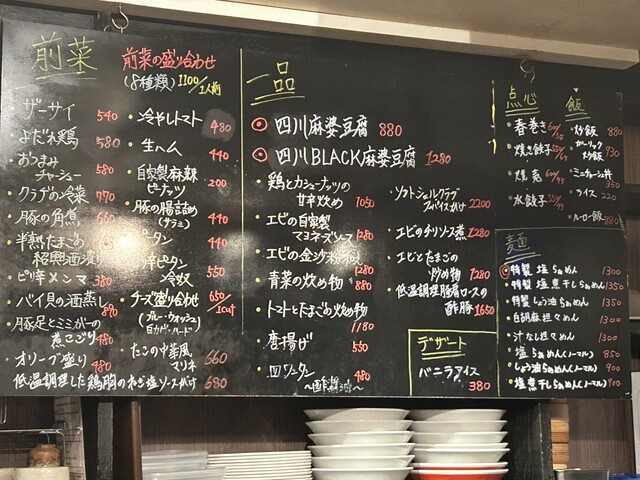 前菜
前菜の盛り合わせ
(8種類) 1100/1人前
ザーサイ 540
よだれ鶏 580
おつまみ
チャーシュー 580
クラゲの冷菜
豚の角煮
半熟たまごの
紹興酒漬け
ピリ辛メンマ 380
バイ貝の酒蒸し
豚足とミミガーの
煮こごり 480
オリーブ盛り 480
低温調理した鶏胸のねぎ塩ソースがけ 680
冷やしトマト 480
生ハム 440
自家製麻辣
ピーナッツ 200
豚の腸詰め
(サラミ) 440
ピータン 440
ピータン
冷奴 550
チーズ盛り合わせ 650/1cut
たこの中華風
マリネ 660
一品
四川麻婆豆腐 880
四川BLACK麻婆豆腐 1280
鶏とカシューナッツの
甘辛炒め 1050
エビの自家製
マヨネーズソース 1280
エビの金沙粉和え 1280
青菜の炒め物 880
トマトとたまごの炒め物
1180
唐揚げ 550
ワンタン 480
ソフトシェルクラブ
スパイスがけ 2200
エビのチリソース煮 1280
エビとたまごの
炒め物 1280
低温調理豚肩ロースの
酢豚 1650
デザート
バニラアイス
380
点心
春巻き
焼き餃子
焼売
水餃子
飯
炒飯 880
ガーリック
炒飯 930
ミニチャーシュー丼
350
ライス 220
ルーロー飯 880
麺
特製 塩らぁめん 1300
特製 塩煮干しらぁめん 1350
特製 しょうゆらぁめん 1350
白胡麻担々めん 1300
汁なし担々めん 1300
塩らぁめん(ノーマル) 850
しょうゆらぁめん(ノーマル) 900
塩煮干しらぁめん(ノーマル) 900